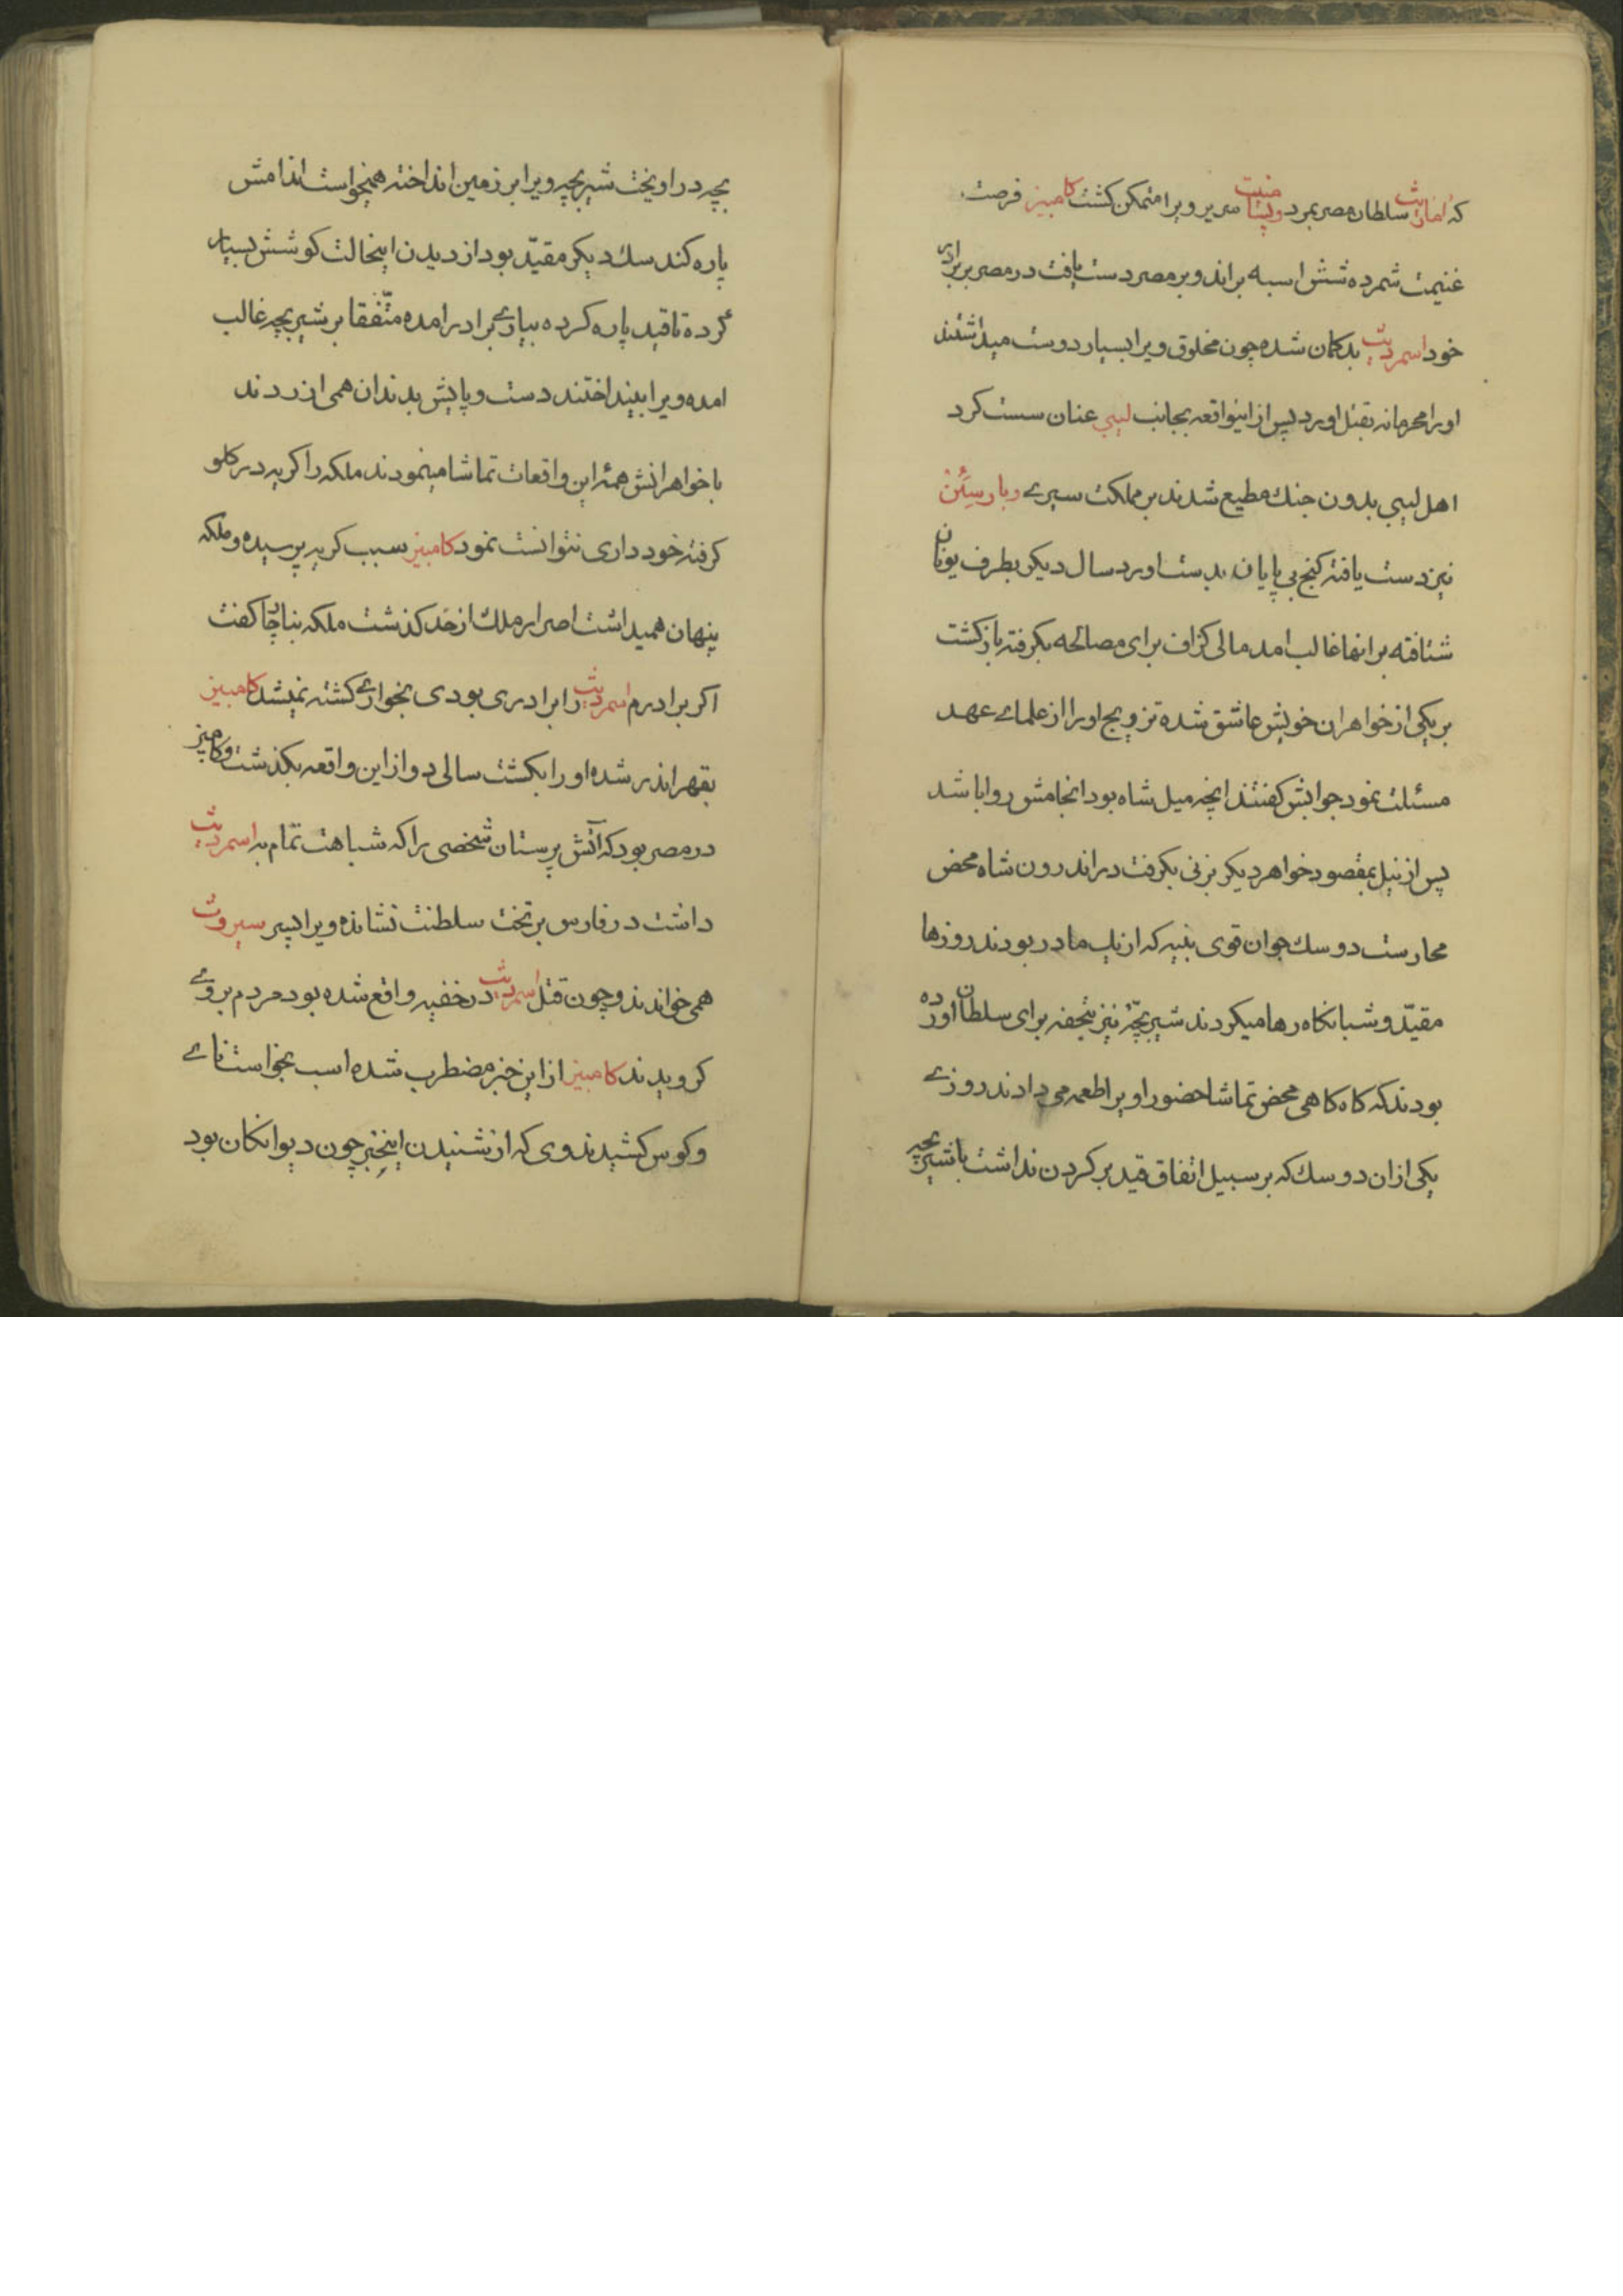 که اماریث سلطان مصر بمرد و پسامنیت سریر ویرا متمکن کشت کامبیز فرصت
غنیمت شمرده شش اسبه براند و بر مصر دست یافت در مصر بر برادر
خود اسمردیث بدکمان شده چون مخلوق ویرا بسیار دوست میداشتند
اورا محرمانه بقتل اورد پس از اینواقعه بجانب لیبی عنان سست کرد
اهل لیبی بدون جنك مطیع شدند بر مملکت سیرے و بارسئن
نیز دست یافته کنج بی پایان بدست اورد سال دیکر بطرف یونان
شتافته بر انها غالب امد مالی کزاف برای مصالحه بکرفته بازکشت
بر یکی از خواهران خویش عاشق شده تزویج اورا از علماے عهد
مسئلت نمود جوابش کفتند انچه میل شاه بود انجامش روا باشد
پس از نیل بمقصود خواهر دیکر بزنی بکرفت در اندرون شاه محض
محارست دو سك جوان قوی بنیه که از یك مادر بودند روزها
مقیّد و شبانکاه رها میکردند شیر بچّهٔ نیز بتحفه برای سلطان اورده
بودند که کاه کاهی محض تماشا حضور او یرا طعمه می دادند روزے
یکی از ان دو سك که بر سبیل اتفاق قید بر کردن نداشت با شیر بچه
بچه در اویخت شیر بچه ویرا بر زمین انداخته همیخواست اندامش
پاره کند سك دیکر مقیّد بود از دیدن اینحالت کوشش بسیار
کرده تا قید پاره کرده بیارے برادر امده متّفقا بر شیر بچه غالب
امده ویرا بینداختند دست و پایش بدندان همی ازردند
با خواهرانش همهٔ این واقعات تماشا مینمودند ملکه را کریه در کلو
کرفته خودداری نتوانست نمود کامبیز سبب کریه پرسیده و ملکه
پنهان همیداشت اصرار ملك از حد کذشت ملکه بناچار کفت
اکر برادرم اسمردیث را برادری بودی بخوارے کشته نمیشد کامبیز
بقهر اندر شده اورا بکشت سالی دو از این واقعه بکذشت و کامبیز
در مصر بود که آتش پرستان شخصی را که شباهت تمام به اسمردیث
داشت در فارس بر تخت سلطنت نشانده ویرا پسر سیروث
همی خواندند و چون قتل اسمردیث در خفیه واقع شده بود مردم بروے
کرویدند کامبیز از این خبر مضطرب شده اسب بخواست نائے
و کوس کشیدند وی که از شنیدن اینخبر چون دیوانکان بود